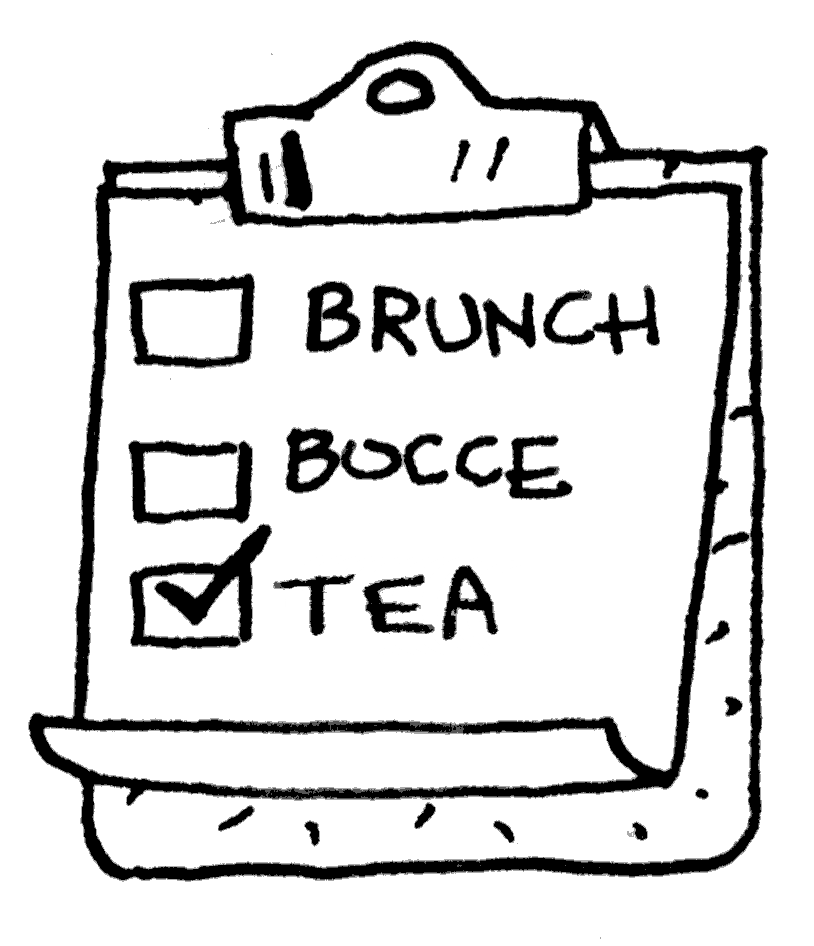 BRUNCH
BOCCE
TEA